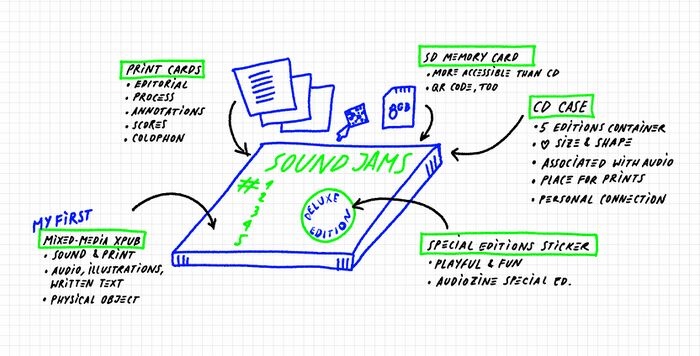 PRINT CARDS
• EDITORIAL
• PROCESS
• ANNOTATIONS
• SCORES
• COLOPHON
SD MEMORY CARD
• MORE ACCESSIBLE THAN CD
• QR CODE, TOO
8GB
CD CASE
• 5 EDITIONS CONTAINER
• ♡ SIZE & SHAPE
• ASSOCIATED WITH AUDIO
• PLACE FOR PRINTS
• PERSONAL CONNECTION
SOUND JAMS
#1
2
3
4
5
DELUXE
EDITION
MY FIRST
MIXED-MEDIA XPUB
• SOUND & PRINT
• AUDIO, ILLUSTRATIONS,
WRITTEN TEXT
• PHYSICAL OBJECT
SPECIAL EDITIONS STICKER
• PLAYFUL & FUN
• AUDIOZINE SPECIAL ED.